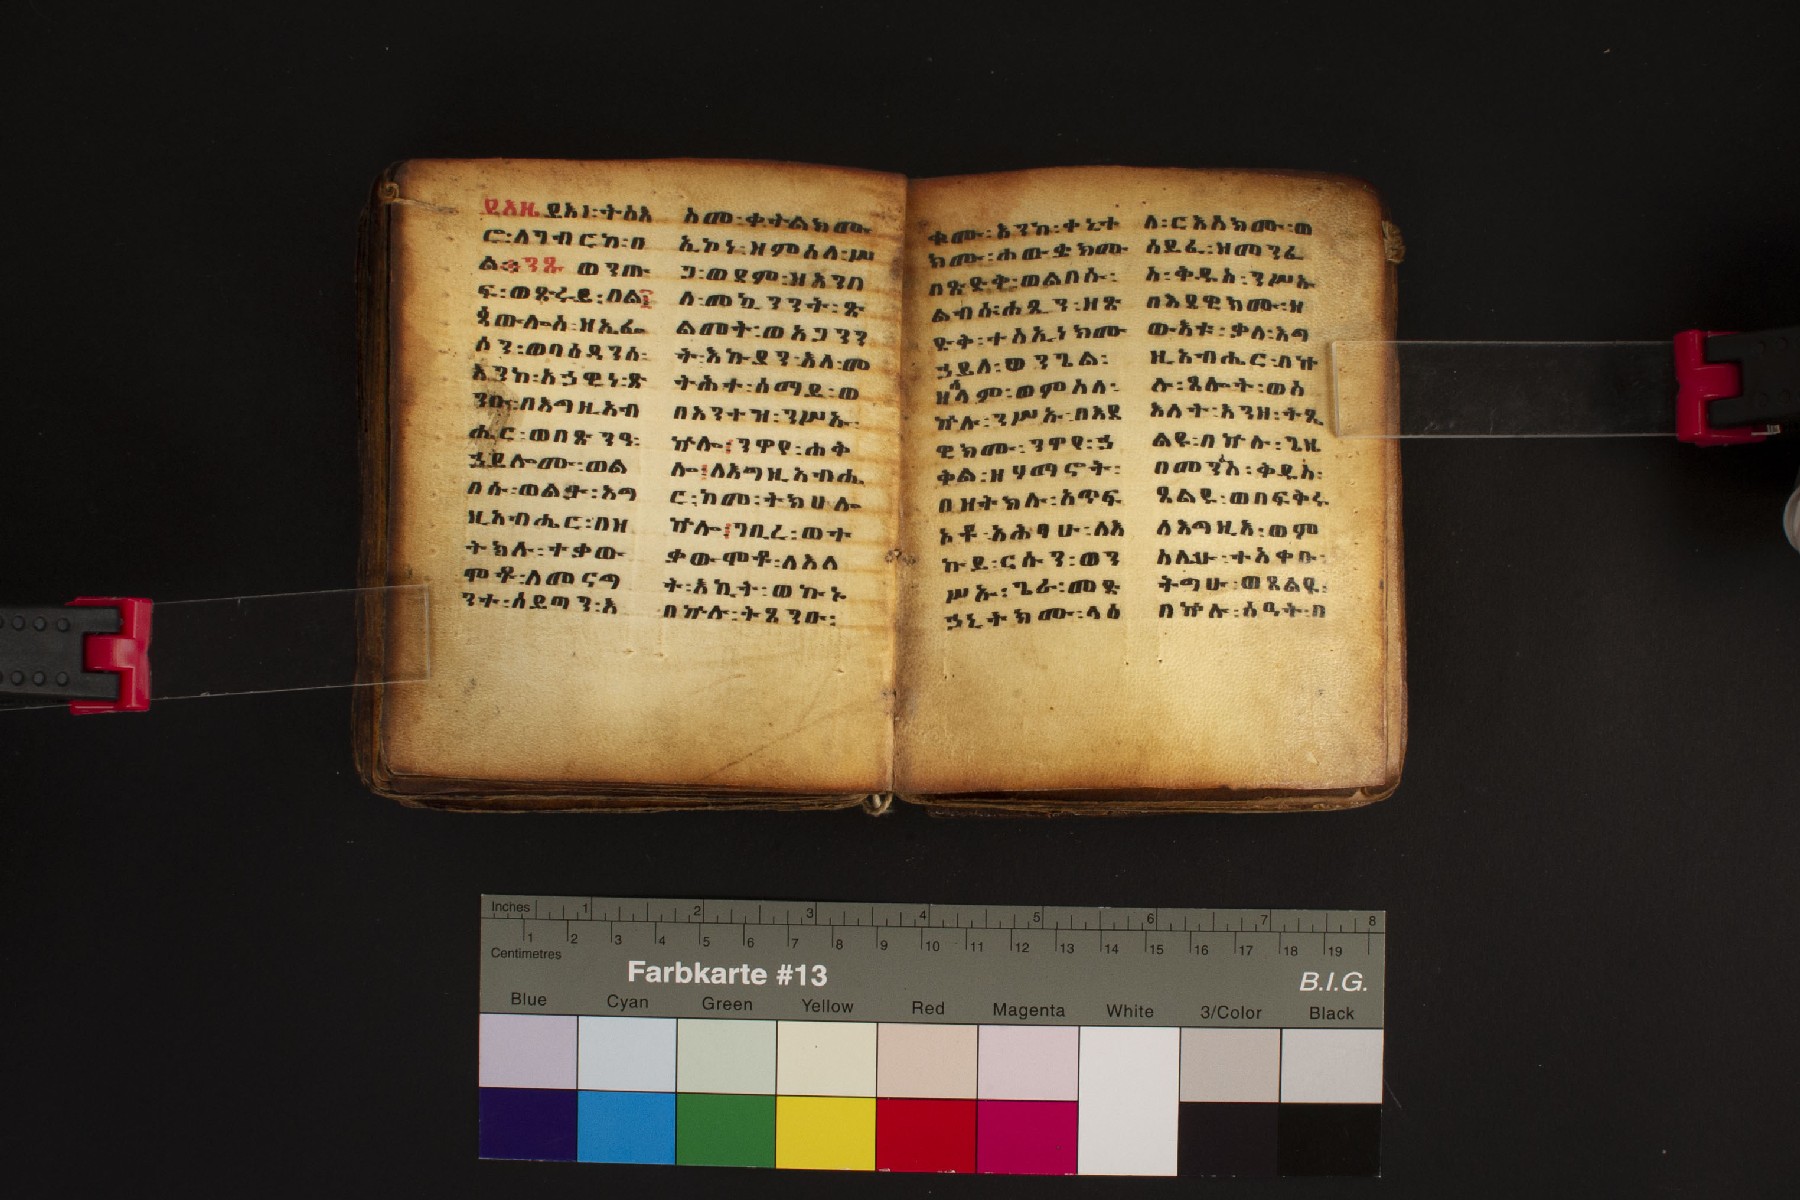 ሮ፡ለገብርከ፡በ
ል፡ንጹ ወንጡ
ፍ፡ወጽሩይ፡በል
ጳውሎስ፡ዘኢፌ
ሶን፡ወባዕዳንሰ፡
እንከ፡አኃዊነ፡ጽ
ንዑ፡በእግዚአብ
ሔር፡ወበጽንዓ፡
ኃይሎሙ፡ወል
በሱ፡ወልታ፡እግ
ዚአብሔር፡በዘ
ትክሉ፡ተቃው
ሞቶ፡ለመናግ
ንተ፡ሰይጣን፡እ
እመ፡ቀተልክሙ
ኢኮነ፡ዘምስለ፡ሥ
ጋ፡ወደም፡ዘእንበ
ለ፡መኳንንት፡ጽ
ልመት፡ወአጋንን
ት፡እኩያን፡እለ፡መ
ትሕተ፡ሰማይ፡ወ
በእንተ፡ዝ፡ንሥኡ
ኵሎ፡ንዋየ፡ሐቅ
ሎ፡ለእግዚአብሔ
ር፡ከመ፡ትክሀሉ
ኵሎ፡ገቢረ፡ወተ
ቃውሞቶ፡ለእለ
ት፡እኪት፡ወኩኑ
በኵሉ፡ትጽንዑ፡
ቁሙ፡እንከ፡ቀኒተ
ክሙ፡ሐውቋክሙ
በጽድቅ፡ወልበሱ፡
ልብሰ፡ሐጺን፡ዘጽ
ድቅ፡ተስኢነክሙ
ኃይለ፡ወንጌል፡
ዘሰላም፡ወምስለ፡
ኵሉ፡ንሥኡ፡በእደ
ዊክሙ፡ንዋየ፡ኃ
ቅል፡ዘሃማኖት፡
በዘትክሉ፡አጥፍ
ኦቶ፡አሕፃሁ፡ለእ
ኩይ፡ርሱን፡ወን
ሥኡ፡ጌራ፡መድ
ኃኒትክሙ፡ላዕ
ለ፡ርእስክሙ፡ወ
ሰይፈ፡ዘመንፈ
አ፡ቅዱአ፡ንሥኡ
በእደዊክሙ፡ዘ
ውእቱ፡ቃለ፡እግ
ዚአብሔር፡በኵ
ሉ፡ጸሎት፡ወስ
እለት፡እንዘ፡ትጼ
ልዩ፡በኵሉ፡ጊዜ
በመንፈ፡ቅዱስ፡
ጸልዩ፡ወበፍቅሩ
ለእግዚአ፡ወም
ትግሁ፡ወጸልዩ፡
በኵሉ፡ሰዓት፡በ
Inches 1 2 3 4 5 6 7 8
1 2 3 4 5 6 7 8 9 10 11 12 13 14 15 16 17 18 19
Centimetres
Farbkarte #13 B.I.G.
Blue Cyan Green Yellow Red Magenta White 3/Color Black